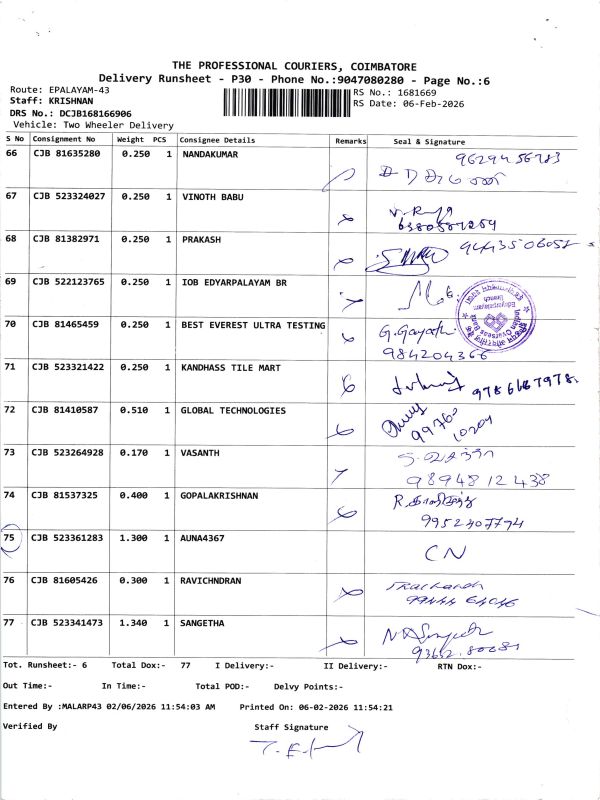 THE PROFESSIONAL COURIERS, COIMBATORE
Delivery Runsheet - P30 - Phone No.:9047080280 - Page No.:6
Route: EPALAYAM-43
RS No.: 1681669
Staff: KRISHNAN
RS Date: 06-Feb-2026
DRS No.: DCJB168166906
Vehicle: Two Wheeler Delivery
S No Consignment No Weight PCS Consignee Details Remarks Seal & Signature
66 CJB 81635280 0.250 1 NANDAKUMAR
67 CJB 523324027 0.250 1 VINOTH BABU
68 CJB 81382971 0.250 1 PRAKASH
69 CJB 522123765 0.250 1 IOB EDYARPALAYAM BR
70 CJB 81465459 0.250 1 BEST EVEREST ULTRA TESTING G.Gayath
984204366
71 CJB 523321422 0.250 1 KANDHASS TILE MART
72 CJB 81410587 0.510 1 GLOBAL TECHNOLOGIES
99760
10204
73 CJB 523264928 0.170 1 VASANTH
98948 12438
74 CJB 81537325 0.400 1 GOPALAKRISHNAN
9952407774
75 CJB 523361283 1.300 1 AUNA4367 CN
76 CJB 81605426 0.300 1 RAVICHNDRAN
99444 64046
77 CJB 523341473 1.340 1 SANGETHA
Tot. Runsheet:- 6 Total Dox:- 77 I Delivery:- II Delivery:- RTN Dox:-
Out Time:- In Time:- Total POD:- Delvy Points:-
Entered By :MALARP43 02/06/2026 11:54:03 AM Printed On: 06-02-2026 11:54:21
Verified By Staff Signature